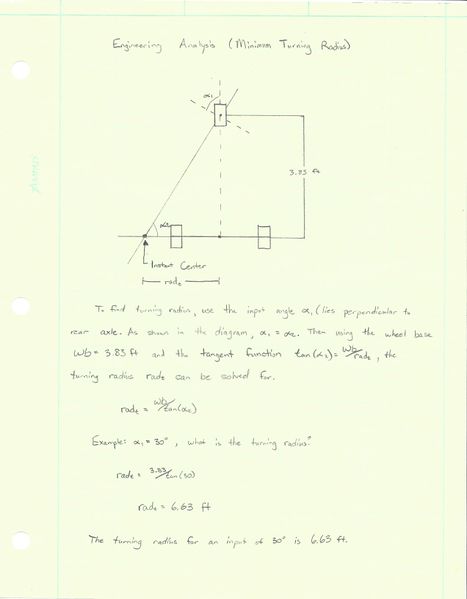 Engineering Analysis (Minimum Turning Radius)
α₁
3.83 ft
α₂
Instant Center
radₜ
To find turning radius, use the input angle α₁ (lies perpendicular to
rear axle. As shown in the diagram, α₁ = α₂. Then using the wheel base
Wb = 3.83 ft and the tangent function tan(α₂) = Wb/radₜ, the
turning radius radₜ can be solved for.
radₜ = Wb/tan(α₂)
Example: α₁ = 30°, what is the turning radius?
radₜ = 3.83/tan(30)
radₜ = 6.63 ft
The turning radius for an input of 30° is 6.63 ft.